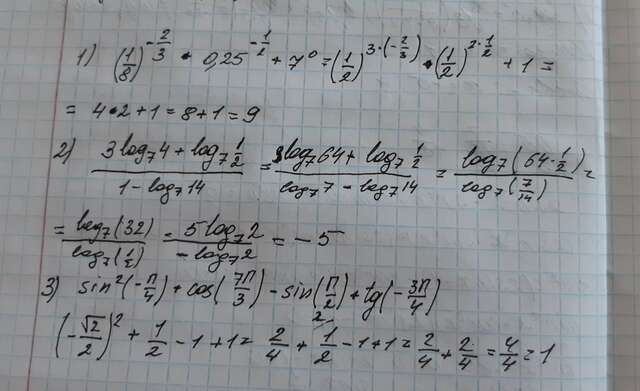 1) (1/8)^(-2/3) • 0,25^(-1/2) + 7⁰ = (1/2)^(3·(-2/3)) • (1/2)^(2·1/2) + 1 =
= 4•2+1 = 8+1 = 9
2) (3log₇4 + log₇ 1/2)/(1 - log₇14) = (log₇64 + log₇ 1/2)/(log₇7 - log₇14) = (log₇(64·1/2))/(log₇(7/14)) =
= (log₇(32))/(log₇(1/2)) = (5log₇2)/(-log₇2) = -5
3) sin²(-π/4) + cos(7π/3) - sin(π/2) + tg(-3π/4)
(-√2/2)² + 1/2 - 1 + 1 = 2/4 + 1/2 - 1 + 1 = 2/4 + 2/4 = 4/4 = 1